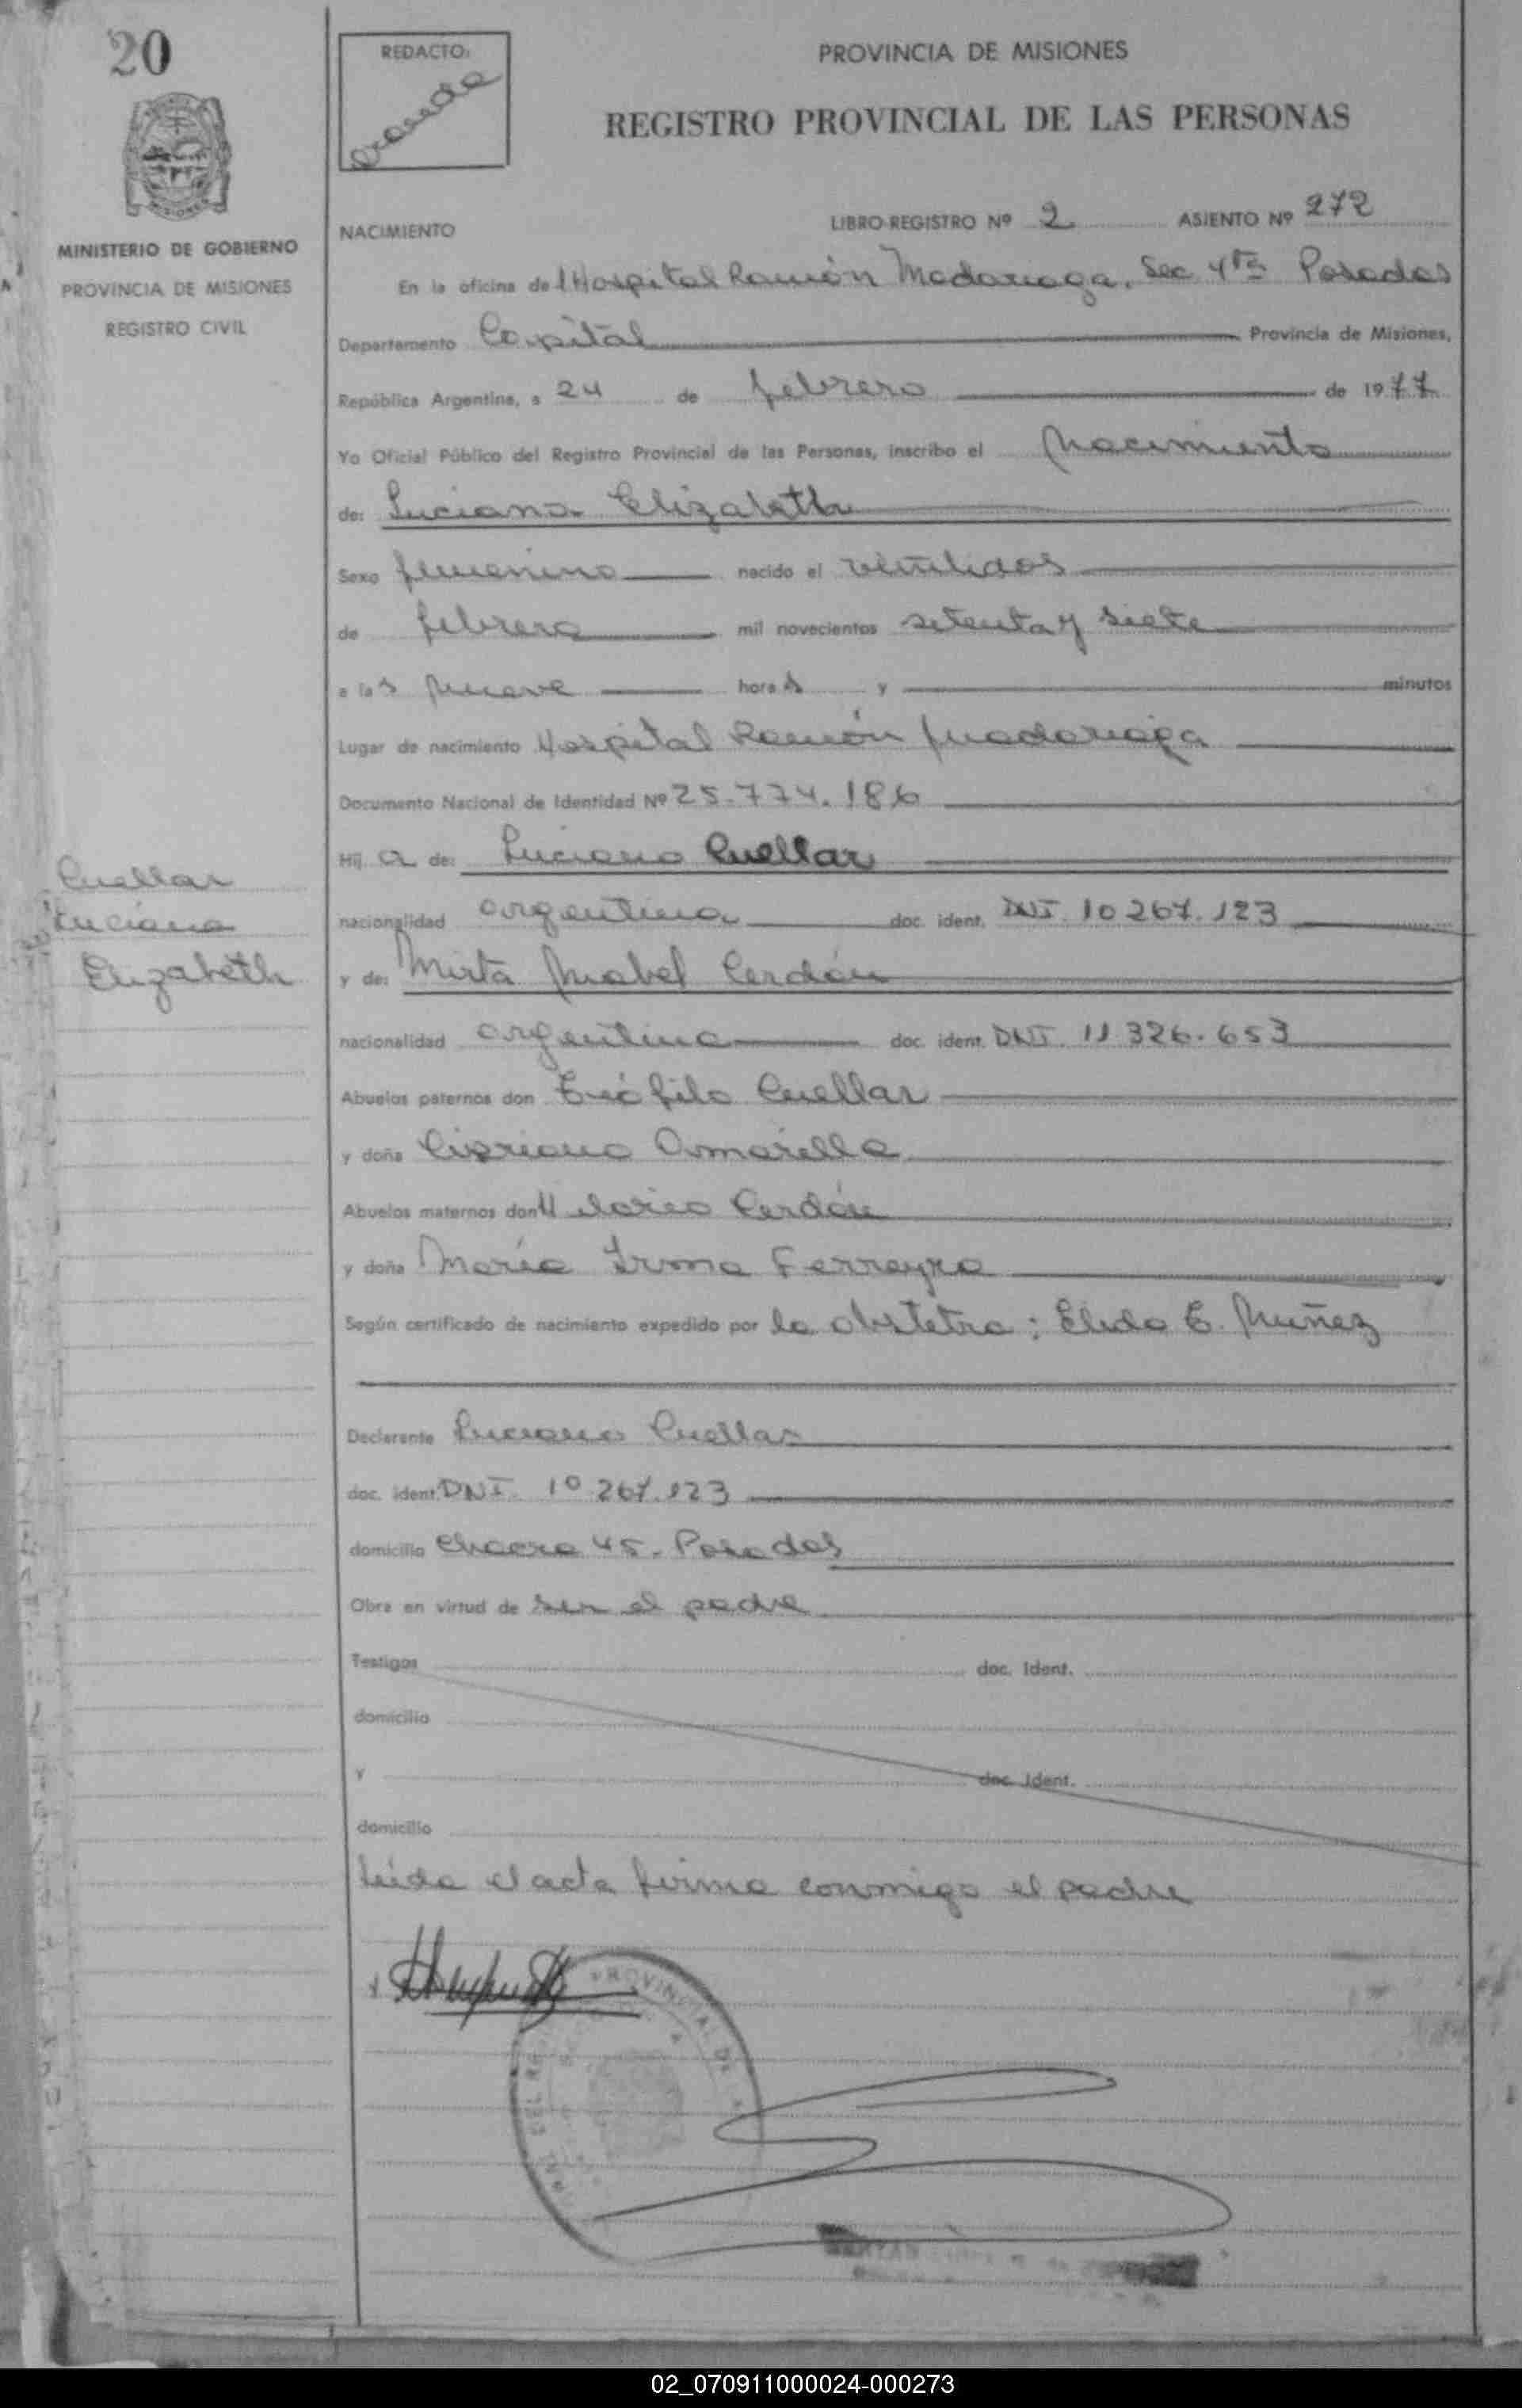 20
REDACTO:
PROVINCIA DE MISIONES
REGISTRO PROVINCIAL DE LAS PERSONAS
MISIONES
MINISTERIO DE GOBIERNO
PROVINCIA DE MISIONES
REGISTRO CIVIL
NACIMIENTO
LIBRO-REGISTRO Nº 2 ASIENTO Nº 272
En la oficina del Hospital Ramón Madariaga, Sec 4ta Posadas
Departamento Capital Provincia de Misiones,
República Argentina, a 24 de febrero de 1977
Yo Oficial Público del Registro Provincial de las Personas, inscribo el Nacimiento
de: Luciana Elizabeth
Sexo femenino nacido el veintidos
de febrero mil novecientos setenta y siete
a las nueve horas y minutos
Lugar de nacimiento Hospital Ramón Madariaga
Documento Nacional de Identidad Nº 25.774.186
Hij a de: Luciano Cuellar
nacionalidad argentina doc. ident. DNI. 10.267.123
Cuellar
Luciana
Elizabeth
y de: Mirta Mabel Cerdán
nacionalidad argentina doc. ident. DNI. 11.326.653
Abuelos paternos don Teófilo Cuellar
y doña Cipriana Amarilla
Abuelos maternos don Hilario Cerdán
y doña María Irma Ferreyra
Según certificado de nacimiento expedido por la obstetra: Elida E. Nuñez
Declarante Luciano Cuellar
doc. ident. DNI. 10.267.123
domicilio Chacra 45. Posadas
Obra en virtud de ser el padre
Testigos doc. Ident.
domicilio
y doc. Ident.
domicilio
Leida el acta firma conmigo el padre
PROVINCIAL DE
02_070911000024-000273